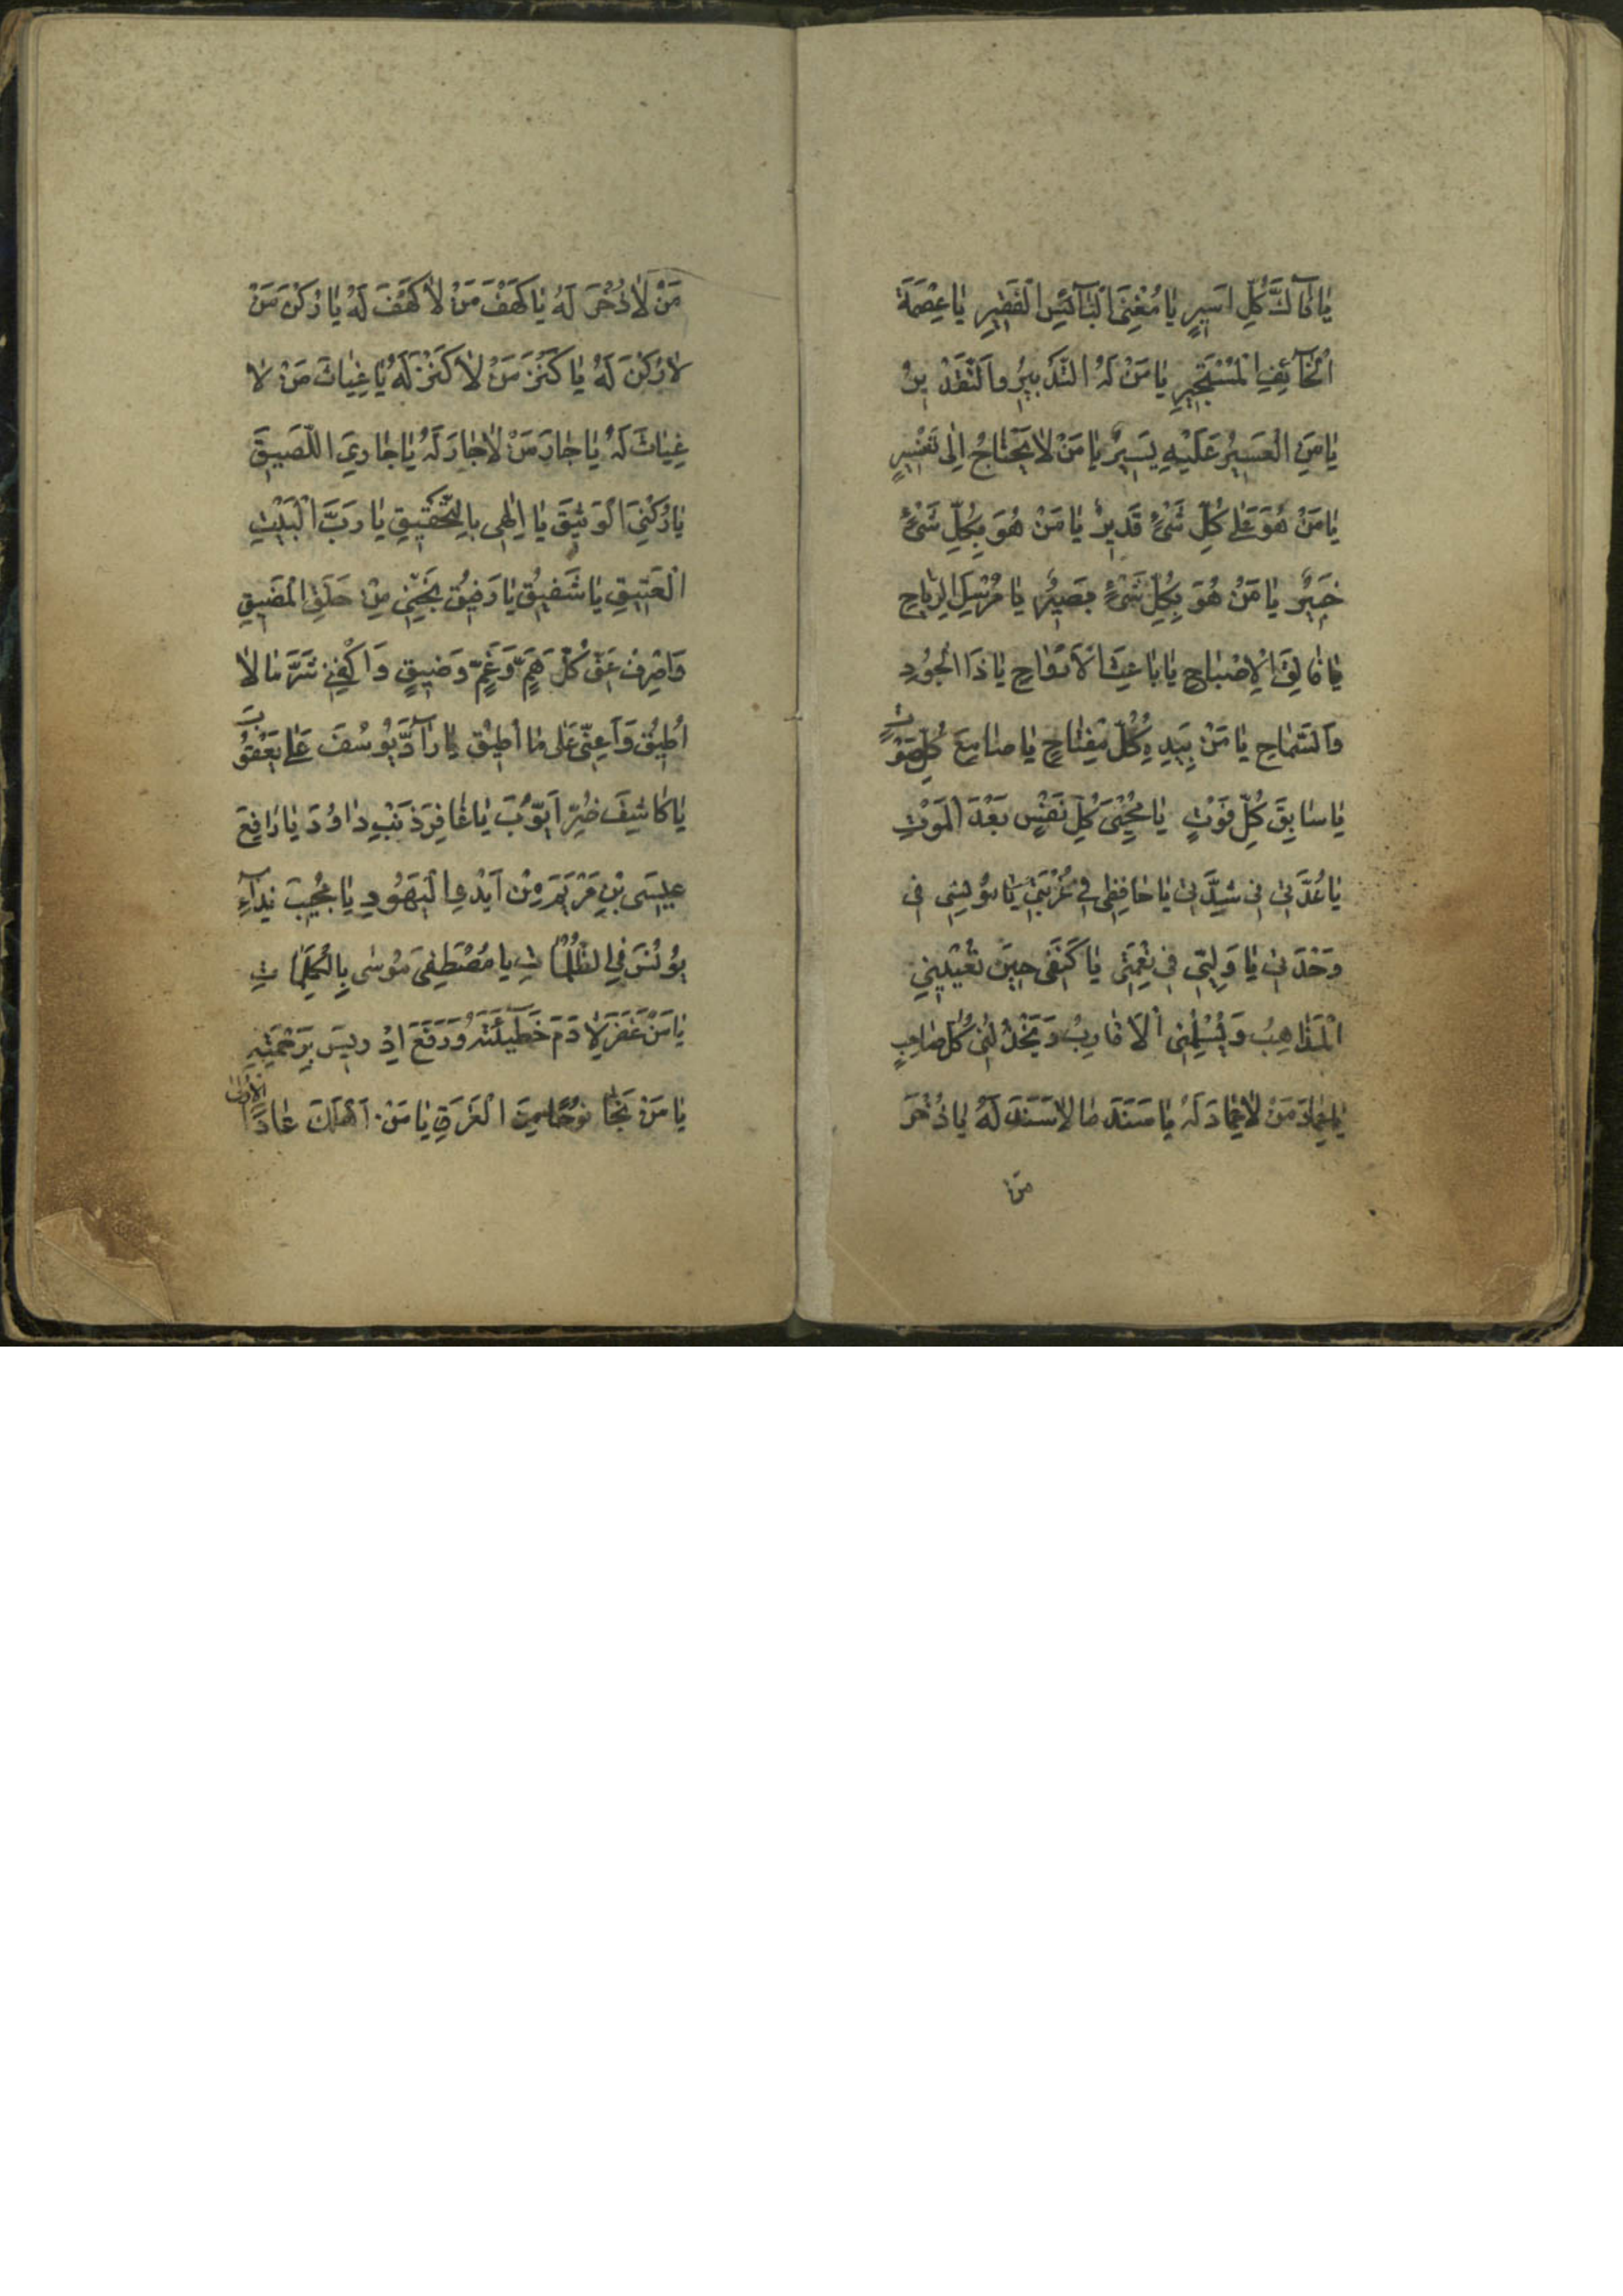 يَا فَآكَّ كُلِّ اَسِيرٍ يَا مُغْنِيَ الْبَآئِسِ الْفَقِيرِ يَا عِصْمَةَ
الْخَآئِفِ الْمُسْتَجِيرِ يَا مَنْ لَهُ التَّدْبِيرُ وَالتَّقْدِيرُ
يَا مَنِ الْعَسِيرُ عَلَيْهِ يَسِيرٌ يَا مَنْ لَا يَحْتَاجُ اِلَى تَفْسِيرٍ
يَا مَنْ هُوَ عَلَى كُلِّ شَيْءٍ قَدِيرٌ يَا مَنْ هُوَ بِكُلِّ شَيْءٍ
خَبِيرٌ يَا مَنْ هُوَ بِكُلِّ شَيْءٍ بَصِيرٌ يَا مُرْسِلَ الرِّيَاحِ
يَا فَالِقَ الْاِصْبَاحِ يَا بَاعِثَ الْاَرْوَاحِ يَا ذَا الْجُودِ
وَالسَّمَاحِ يَا مَنْ بِيَدِهِ كُلُّ مِفْتَاحٍ يَا سَامِعَ كُلِّ صَوْتٍ
يَا سَابِقَ كُلِّ فَوْتٍ يَا مُحْيِيَ كُلِّ نَفْسٍ بَعْدَ الْمَوْتِ
يَا عُدَّتِي فِي شِدَّتِي يَا حَافِظِي فِي غُرْبَتِي يَا مُونِسِي فِي
وَحْدَتِي يَا وَلِيِّي فِي نِعْمَتِي يَا كَنَفِي حِينَ تُعْيِينِي
الْمَذَاهِبُ وَيُسْلِمُنِي الْاَقَارِبُ وَيَخْذُلُنِي كُلُّ صَاحِبٍ
يَا عِمَادَ مَنْ لَا عِمَادَ لَهُ يَا سَنَدَ مَا لَا سَنَدَ لَهُ يَا ذُخْرَ
مَنْ
مَنْ لَا ذُخْرَ لَهُ يَا كَهْفَ مَنْ لَا كَهْفَ لَهُ يَا رُكْنَ مَنْ
لَا رُكْنَ لَهُ يَا كَنْزَ مَنْ لَا كَنْزَ لَهُ يَا غِيَاثَ مَنْ لَا
غِيَاثَ لَهُ يَا جَارَ مَنْ لَا جَارَ لَهُ يَا جَارِيَ اللَّصِيقَ
يَا رُكْنِيَ الْوَثِيقَ يَا اِلٰهِي بِالتَّحْقِيقِ يَا رَبَّ الْبَيْتِ
الْعَتِيقِ يَا شَفِيقُ يَا رَفِيقُ نَجِّنِي مِنْ حَلَقِ الْمَضِيقِ
وَاصْرِفْ عَنِّي كُلَّ هَمٍّ وَغَمٍّ وَضِيقٍ وَاكْفِنِي شَرَّ مَا لَا
اُطِيقُ وَاَعِنِّي عَلَى مَا اُطِيقُ يَا رَآدَّ يُوسُفَ عَلَى يَعْقُوبَ
يَا كَاشِفَ ضُرِّ اَيُّوبَ يَا غَافِرَ ذَنْبِ دَاوُدَ يَا رَافِعَ
عِيسَى بْنِ مَرْيَمَ مِنْ اَيْدِي الْيَهُودِ يَا مُجِيبَ نِدَآءِ
يُونُسَ فِي الظُّلُمَاتِ يَا مُصْطَفِيَ مُوسَى بِالْكَلِمَاتِ
يَا مَنْ غَفَرَ لِاٰدَمَ خَطِيئَتَهُ وَرَفَعَ اِدْرِيسَ بِرَحْمَتِهِ
يَا مَنْ نَجَّا نُوحًا مِنَ الْغَرَقِ يَا مَنْ اَهْلَكَ عَادًا الْاُولَى